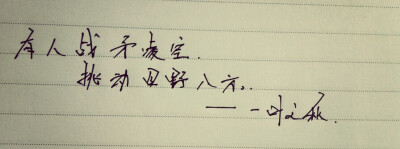 有人战矛凌空.
挑动四野八方.
—— 一叶之秋.